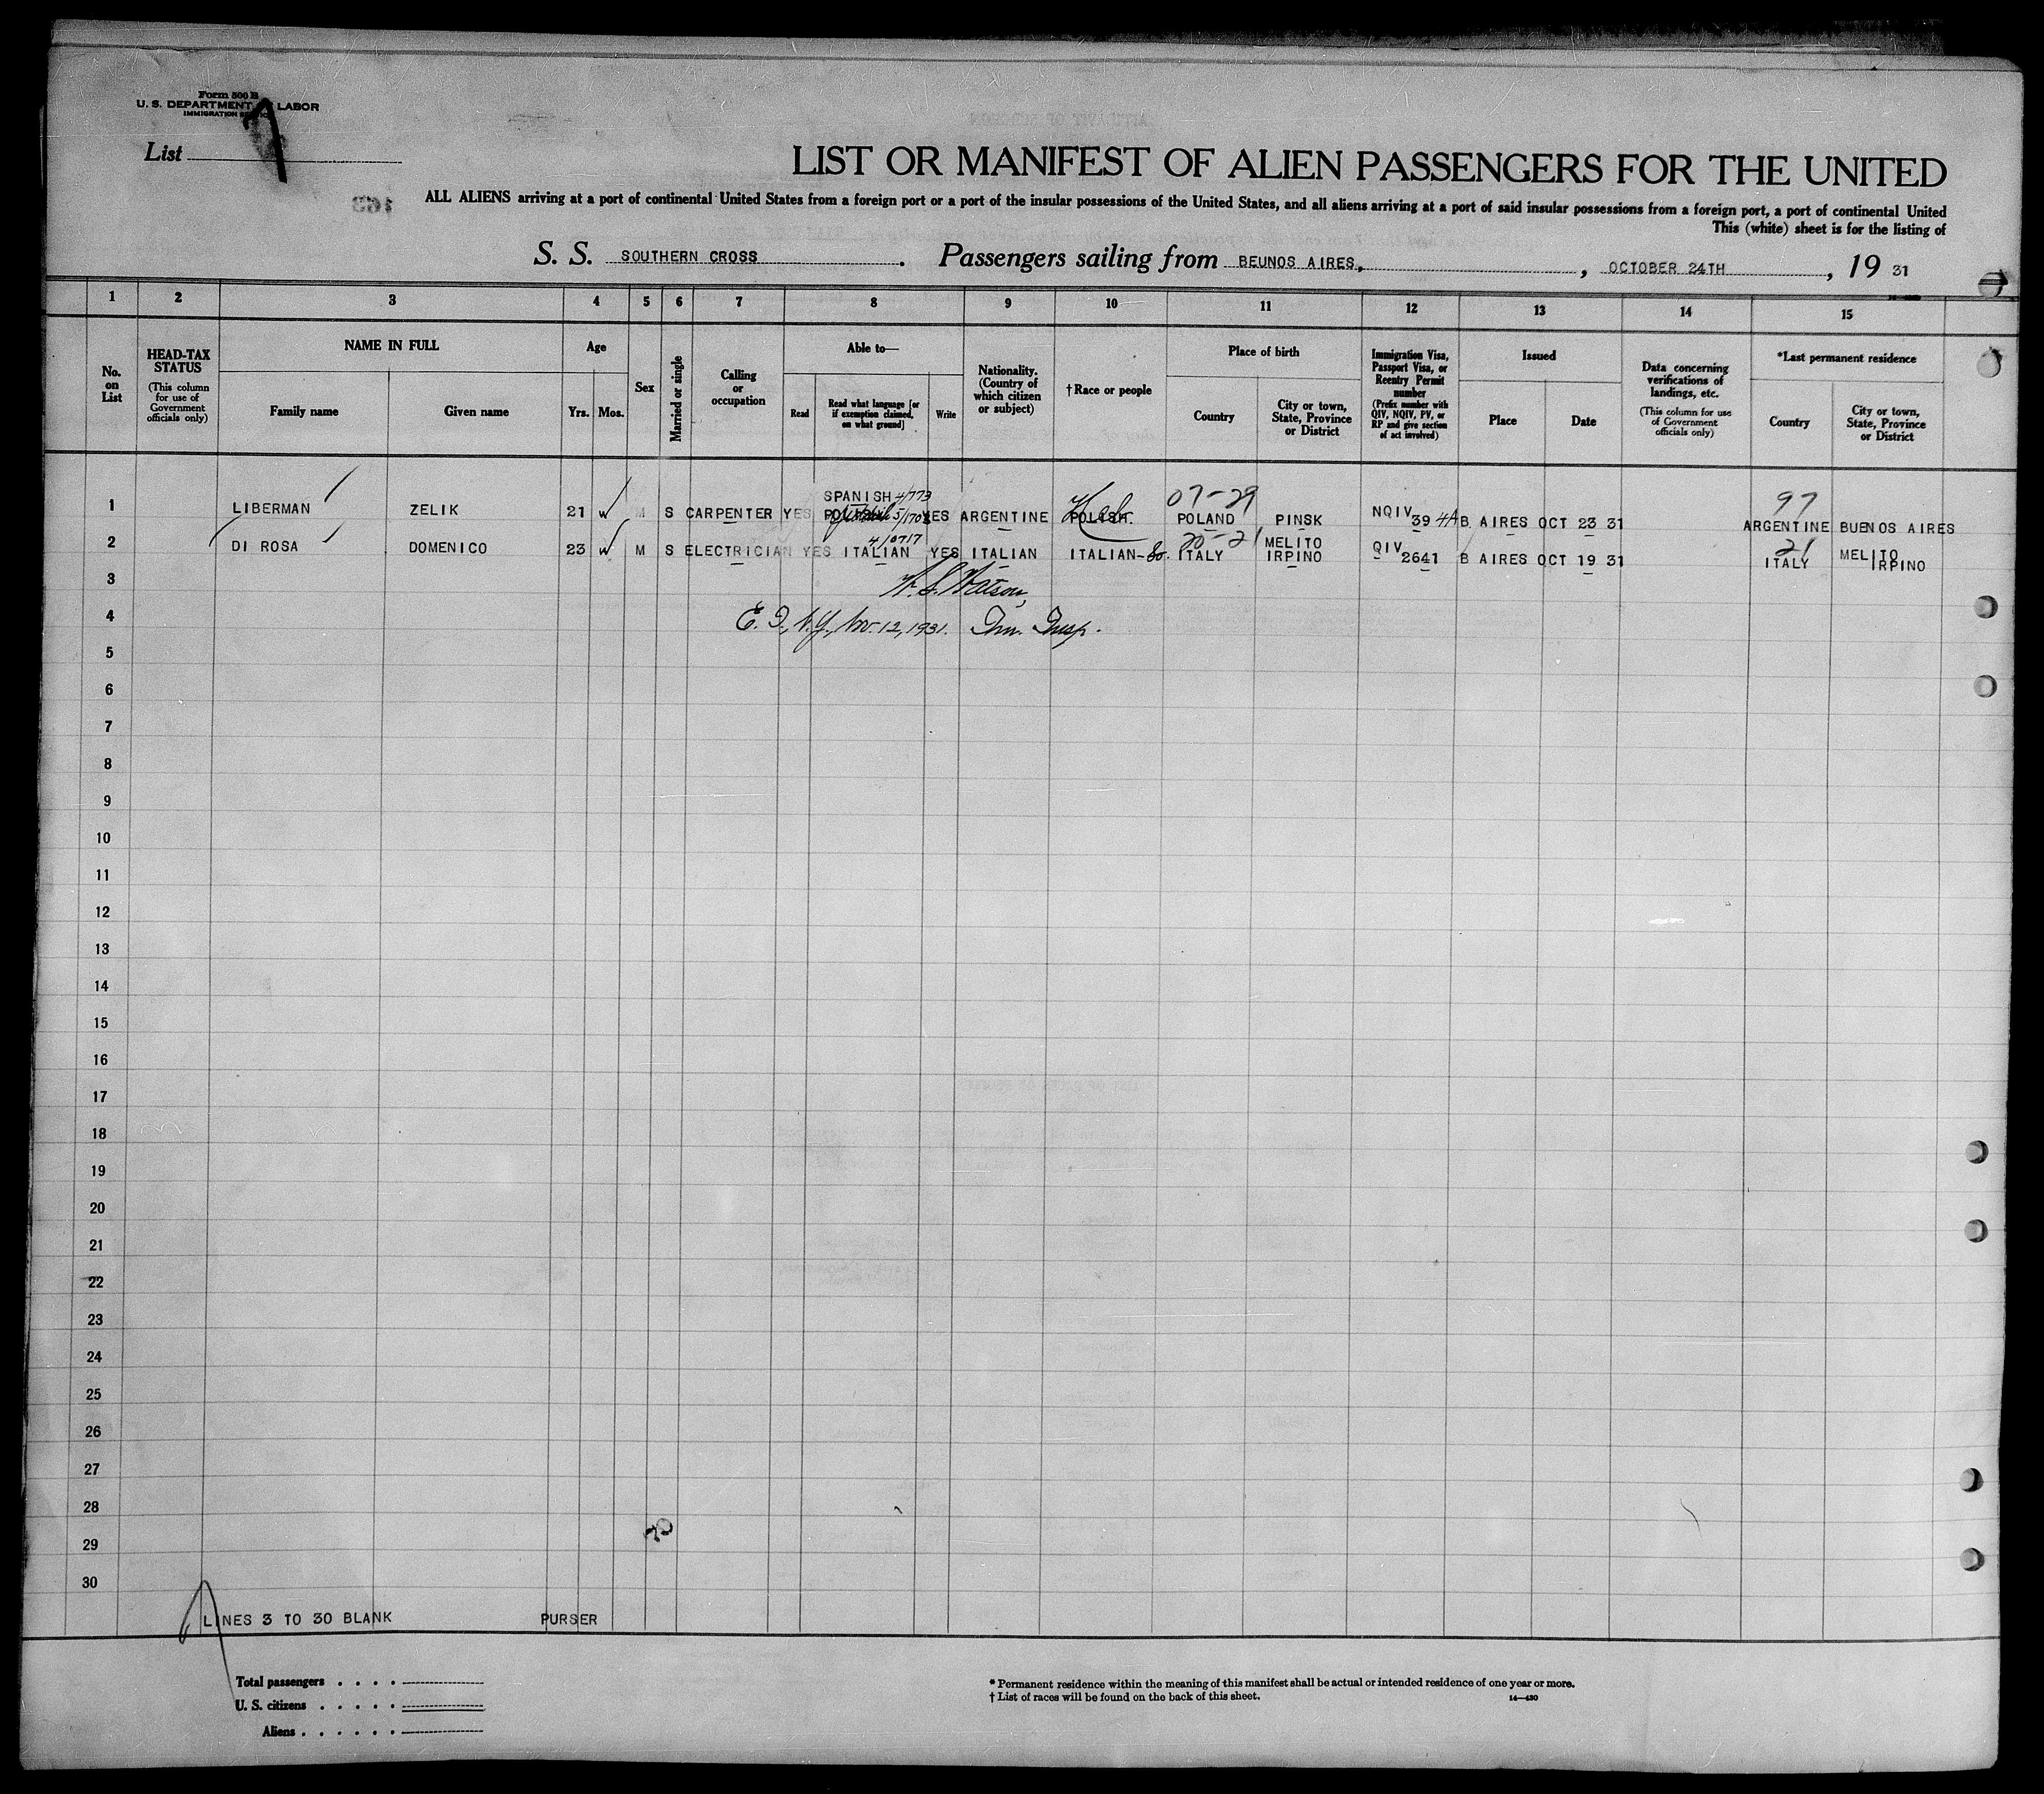 Form 500 B
U. S. DEPARTMENT LABOR
IMMIGRATION
List 7
LIST OR MANIFEST OF ALIEN PASSENGERS FOR THE UNITED
ALL ALIENS arriving at a port of continental United States from a foreign port or a port of the insular possessions of the United States, and all aliens arriving at a port of said insular possessions from a foreign port, a port of continental United
This (white) sheet is for the listing of
S. S. SOUTHERN CROSS . Passengers sailing from BEUNOS AIRES, , OCTOBER 24TH , 19 31
1 2 3 4 5 6 7 8 9 10 11 12 13 14 15
No. on List
HEAD-TAX STATUS
(This column for use of Government officials only)
NAME IN FULL
Family name
Given name
Age
Yrs.
Mos.
Sex
Married or single
Calling or occupation
Able to—
Read
Read what language [or if exemption claimed, on what ground]
Write
Nationality. (Country of which citizen or subject)
† Race or people
Place of birth
Country
City or town, State, Province or District
Immigration Visa, Passport Visa, or Reentry Permit number
(Prefix number with QIV, NQIV, PV, or RP and give section of act involved)
Issued
Place
Date
Data concerning verifications of landings, etc.
(This column for use of Government officials only)
*Last permanent residence
Country
City or town, State, Province or District
SPANISH 4/773 07-29 97
1 LIBERMAN ZELIK 21 M S CARPENTER YES YES ARGENTINE POLISH Heb. POLAND PINSK NQIV 39 4A B AIRES OCT 23 31 ARGENTINE BUENOS AIRES
2 DI ROSA DOMENICO 23 M S ELECTRICIAN YES ITALIAN YES ITALIAN ITALIAN-So. ITALY MELITO IRPINO QIV 2641 B AIRES OCT 19 31 21 ITALY MELITO IRPINO
3 W. S. Watson,
4 E. I., N.Y., Nov. 12, 1931. Imm. Insp.
5
6
7
8
9
10
11
12
13
14
15
16
17
18
19
20
21
22
23
24
25
26
27
28
29
30
LINES 3 TO 30 BLANK PURSER
Total passengers . . . .
U. S. citizens . . . . .
Aliens . . . . . .
* Permanent residence within the meaning of this manifest shall be actual or intended residence of one year or more.
† List of races will be found on the back of this sheet. 14—430